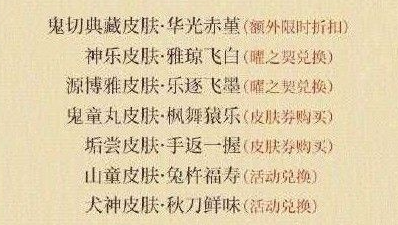 鬼切典藏皮肤·华光赤堇(额外限时折扣)
神乐皮肤·雅琼飞白(曜之契兑换)
源博雅皮肤·乐逐飞墨(曜之契兑换)
鬼童丸皮肤·枫舞猿乐(皮肤券购买)
垢尝皮肤·手返一握(皮肤券购买)
山童皮肤·兔杵福寿(活动兑换)
犬神皮肤·秋刀鲜味(活动兑换)